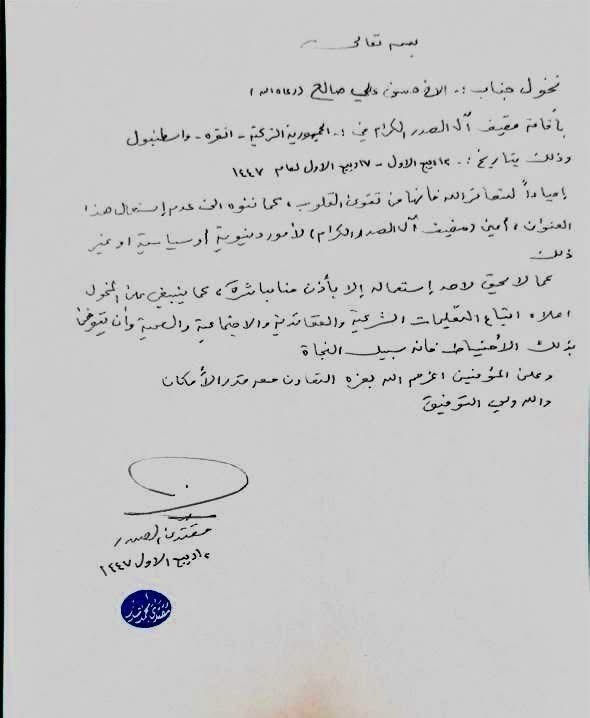 بسمه تعالى
نخول جناب :- الاخ حسون علي صالح (رعاه الله)
بأقامة مضيف آل الصدر الكرام في :- الجمهورية التركية - انقره - واسطنبول
وذلك بتاريخ :- ١٢ ربيع الاول - ١٧ ربيع الاول لعام ١٤٤٧
إحياءاً لشعائر الله فانها من تقوى القلوب، كما ننوه الى عدم إستعمال هذا
العنوان، أعني (مضيف آل الصدر الكرام) لأمور دنيوية أو سياسية او غير
ذلك
كما لا يحق لاحد إستعماله إلا بأذن منا مباشرة، كما ينبغي على المخول
اعلاه اتباع التعليمات الشرعية والعقائدية والاجتماعية والصحية وأن يتوخى
بذلك الأحتياط فانه سبيل النجاة
وعلى المؤمنين اعزهم الله بعزه التعاون معه قدر الأمكان
والله ولي التوفيق
مقتدى الصدر
١٢ ربيع الاول ١٤٤٧